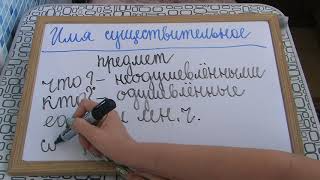 Имя существительное
предмет
что?- неодушевлёнными
кто?- одушевлённые
ед. и мн.ч.